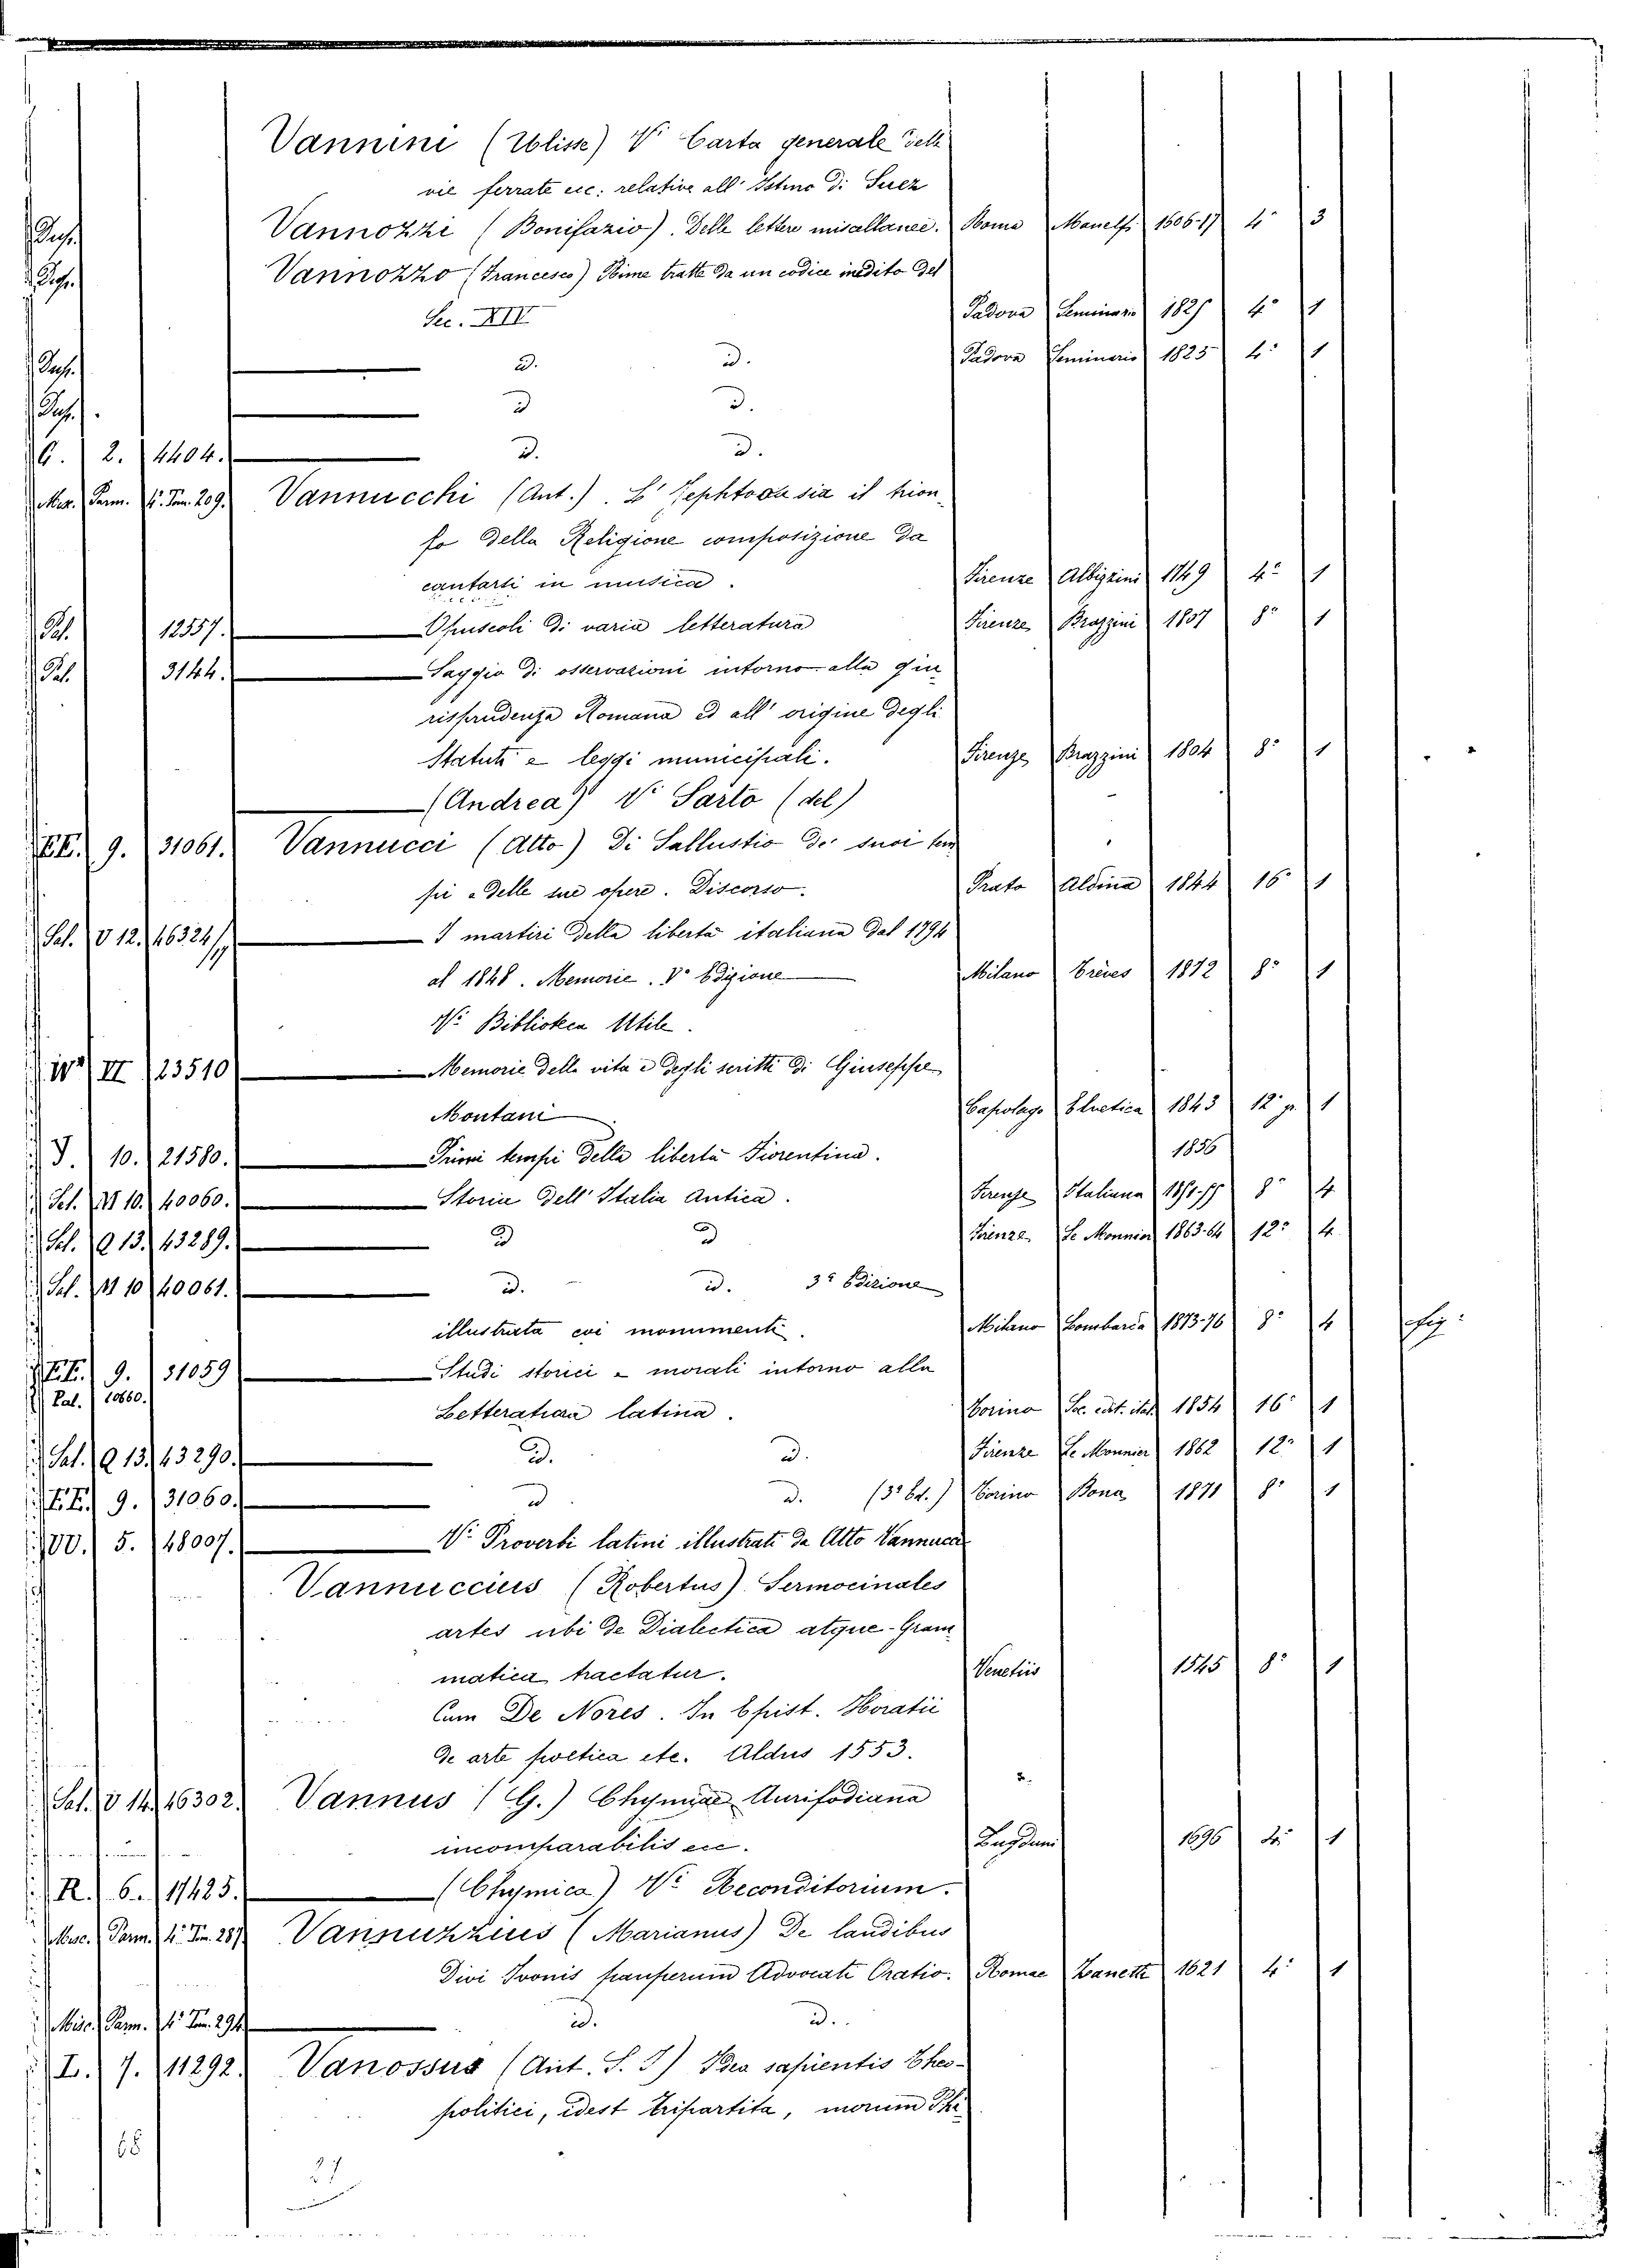 Vannini (Ulisse) V. Carta generale delle
vie ferrate ecc. relative all' Istmo di Suez
Vannozzi (Bonifazio). Delle lettere miscellanee. Roma Manelfi 1606-17 4° 3
Vannozzo (Francesco) Rime tratte da un codice inedito del
Sec. XIV Padova Seminario 1825 4° 1
id. id. Padova Seminario 1825 4° 1
id id.
2. 4404. id. id.
Misc. Parm. 4° Tom. 209. Vannucchi (Ant.). L' Jephte o sia il trion-
fo della Religione composizione da
cantarsi in musica. Firenze Albizzini 1749 4° 1
Pal. 12557. Opuscoli di varia letteratura Firenze Brazzini 1807 8° 1
Pal. 3144. Saggio di osservazioni intorno alla giu-
risprudenza Romana ed all' origine degli
Statuti e leggi municipali. Firenze Brazzini 1804 8° 1
(Andrea) V. Sarto (del)
FF. 9. 31061. Vannucci (Atto) Di Sallustio de' suoi tem-
pi e delle sue opere. Discorso. Prato Aldina 1844 16° 1
Sal. V 12. 46324/ I martiri della libertà italiana dal 1794
al 1848. Memorie. V° Edizione Milano Treves 1872 8° 1
V. Biblioteca Utile.
W II 23510 Memorie della vita e degli scritti di Giuseppe
Montani Capolago Elvetica 1843 12° p. 1
J. 10. 21580. Primi tempi della libertà Fiorentina. 1856
Sal. M 10. 40060. Storia dell' Italia Antica. Firenze Italiana 1851-55 8° 4
Sal. Q 13. 43289. id id Firenze Le Monnier 1863-64 12° 4
Sal. M 10 40061. id. id. 3ª Edizione
illustrata coi monumenti. Milano Lombarda 1873-76 8° 4 fig.
FF. 9. 31059 Studi storici e morali intorno alla
Pal. 10860. Letteratura latina. Torino Soc. edit. ital. 1854 16° 1
Sal. Q 13. 43290. id. id. Firenze Le Monnier 1862 12° 1
FF. 9. 31060. id id. (3ª Ed.) Torino Bona 1871 8° 1
VV. 5. 48007. V. Proverbi latini illustrati da Atto Vannucci
Vannuccius (Robertus) Sermocinales
artes ubi de Dialectica atque Gram-
matica tractatur. Venetiis 1545 8° 1
Cum De Nores. In Epist. Horatii
de arte poetica etc. Aldus 1553.
Sal. V 14. 46302. Vannus (G.) Chymiae Aurifodiana
incomparabilis ecc. Lugduni 1696 1
R. 6. 17425. (Chymica) V. Reconditorium.
Misc. Parm. 4° Tom. 287. Vannuzzius (Marianus) De laudibus
Divi Ivonis pauperum Advocati Oratio. Romae Zanetti 1621 4° 1
Misc. Parm. 4° Tom. 294 id. id.
I. 7. 11292. Vanossus (Ant. S. J.) Idea sapientis Theo-
politici, idest tripartita, morum Phi-
68
27